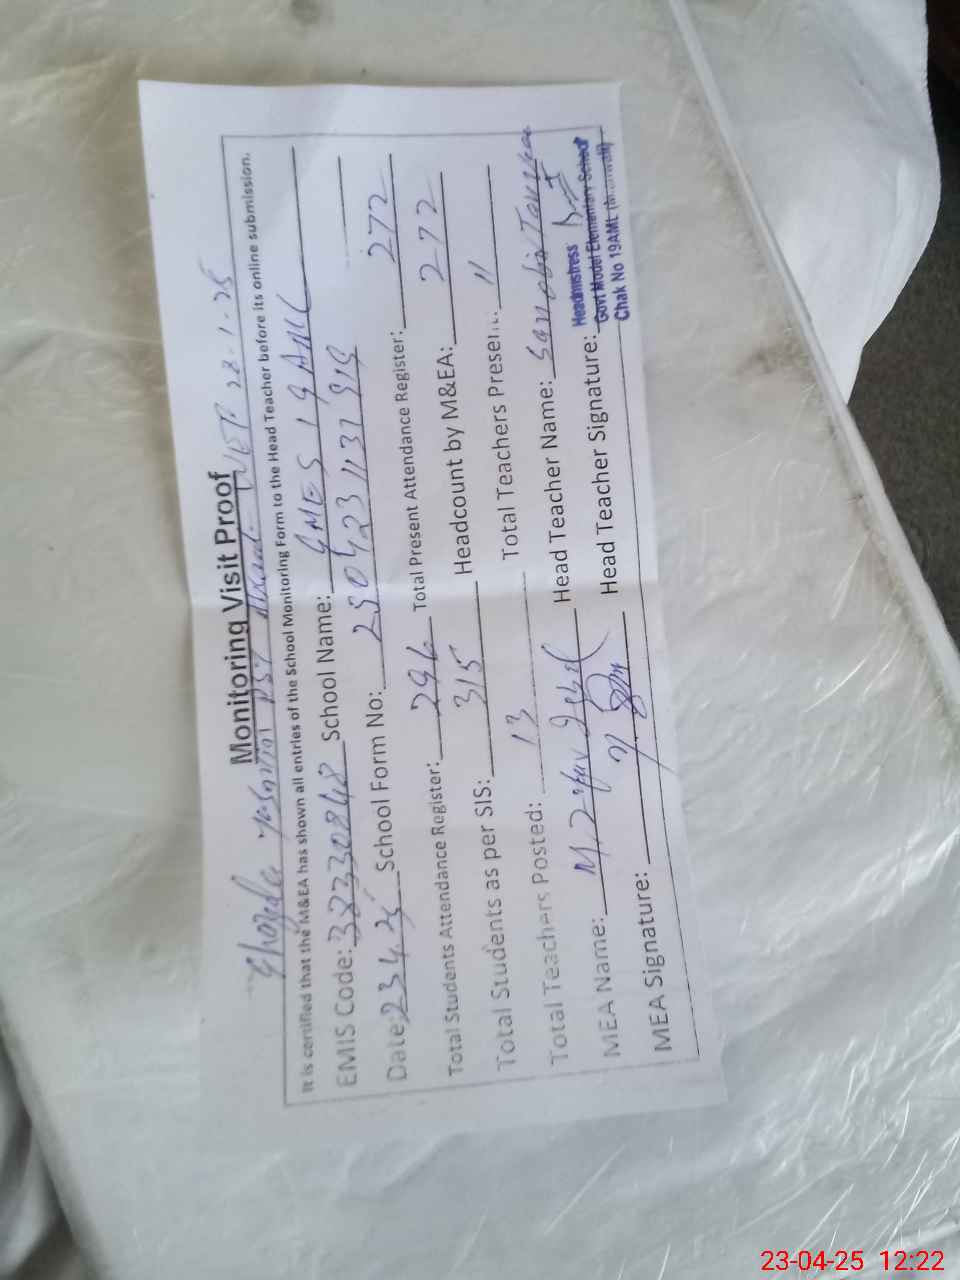 Monitoring Visit Proof
PST WEF 28-1-25
It is certified that the M&EA has shown all entries of the School Monitoring Form to the Head Teacher before its online submission.
EMIS Code: 38330848 School Name: GMES 19 AML
Date: 23 4 25 School Form No: 2504231137919
Total Students Attendance Register: 296 Total Present Attendance Register: 272
Total Students as per SIS: 315 Headcount by M&EA: 272
Total Teachers Posted: 13 Total Teachers Present: 11
MEA Name: M. Head Teacher Name: Sandia
MEA Signature: Head Teacher Signature:
Headmistress
Govt Model Elementary School
Chak No 19AML
23-04-25 12:22